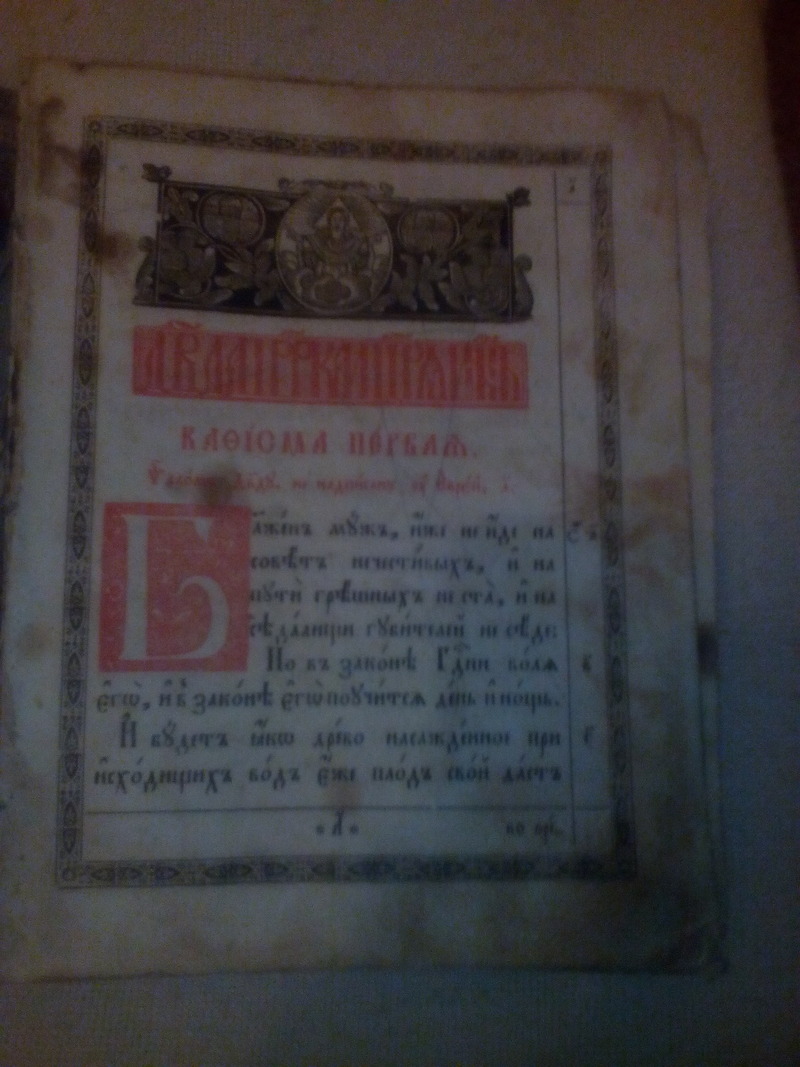 КАѲІСМА ПЕ́РВАѦ.
Б
ла́женъ мꙋ́жъ, и҆́же не и҆́де на
совѣ́тъ нечести́выхъ, и҆ на
пꙋтѝ грѣ́шныхъ не ста̀, и҆ на
сѣда́лищи гꙋби́телей не сѣ́де
Но въ зако́нѣ Гдⷭ҇ни во́лѧ
є҆гѡ̀, и҆ в зако́нѣ є҆гѡ̀ поꙋчи́тсѧ де́нь и҆ но́щь.
И҆ бꙋ́детъ ꙗ҆́кѡ дре́во насажде́нное при
и҆схо́дищихъ во́дъ є҆́же пло́дъ сво́й да́стъ